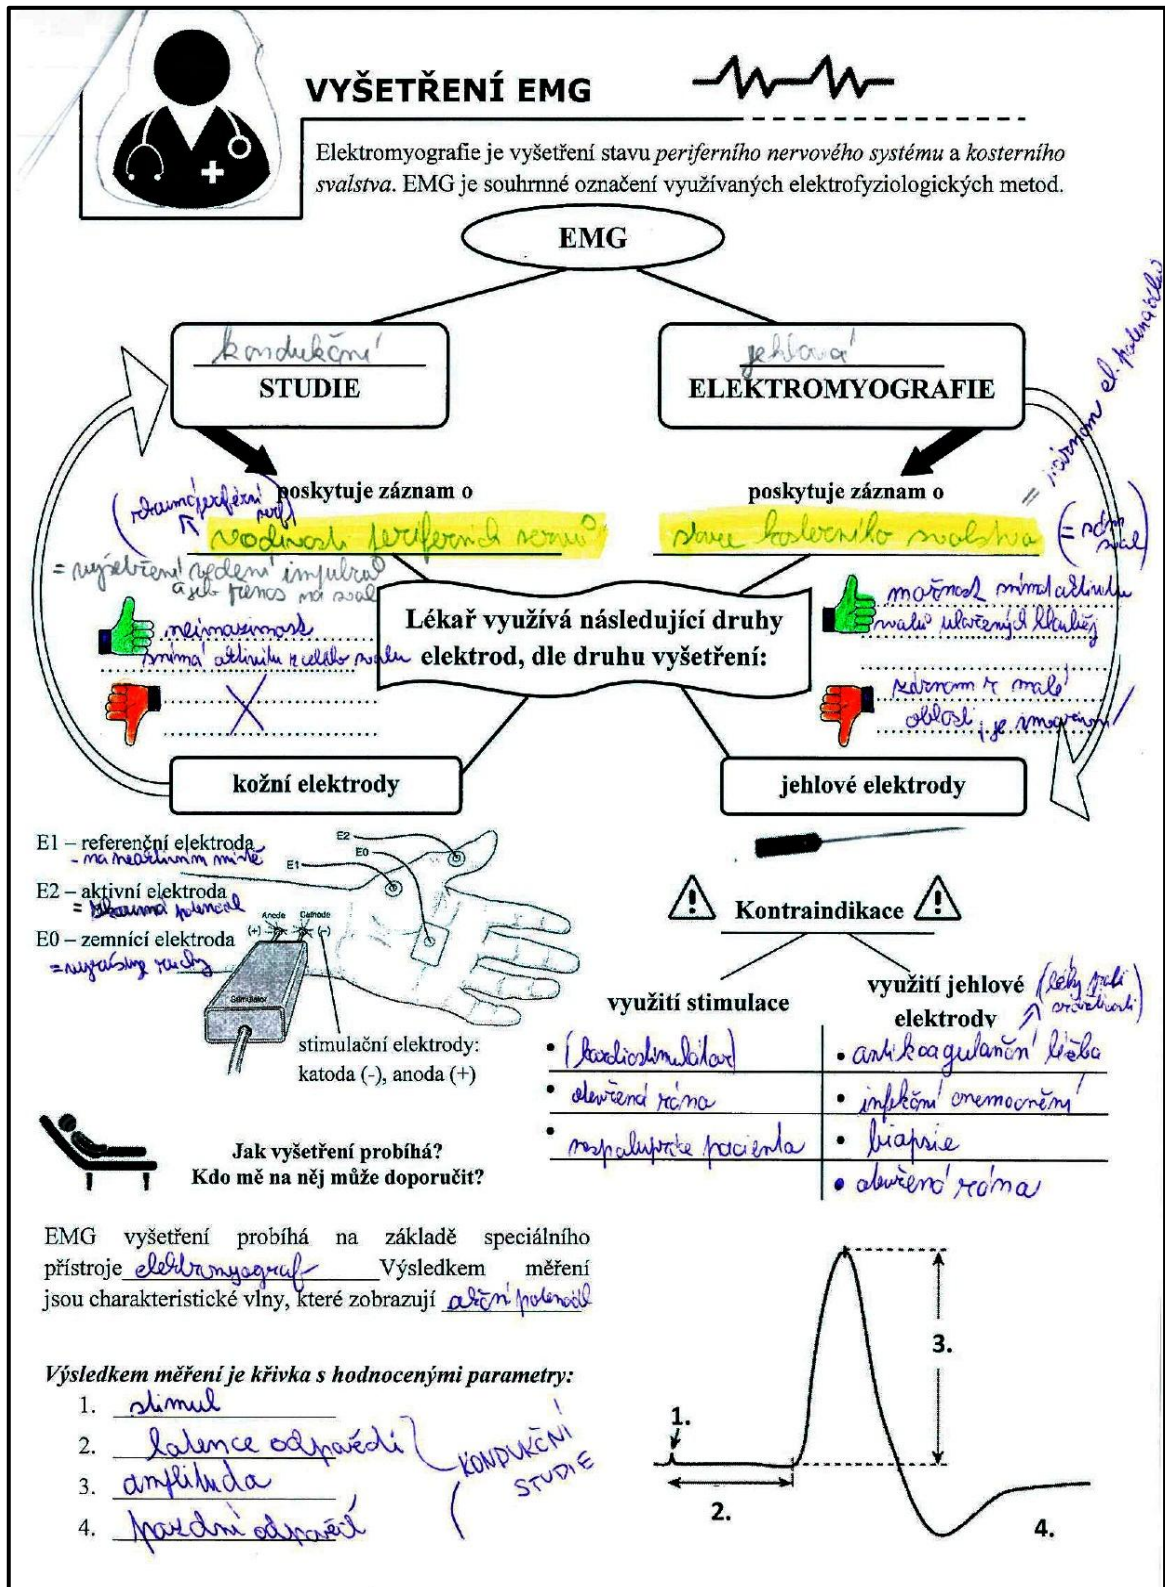 VYŠETŘENÍ EMG
Elektromyografie je vyšetření stavu periferního nervového systému a kosterního
svalstva. EMG je souhrnné označení využívaných elektrofyziologických metod.
EMG
kondukční
STUDIE
jehlová
ELEKTROMYOGRAFIE
= záznam el.
poskytuje záznam o
vodivosti periferních nervů
= vyšetření vedení impulzu
a jeho přenos na sval
poskytuje záznam o
stavu kosterního svalstva
(= sval)
neinvazivnost
snímá aktivitu z celého svalu
X
Lékař využívá následující druhy
elektrod, dle druhu vyšetření:
možnost snímat aktivitu
svalů uložených hlouběji
záznam z malé
oblasti, je invazivní
kožní elektrody
jehlové elektrody
E1 – referenční elektroda
- na neaktivním místě
E2 – aktivní elektroda
= zkoumá potenciál
E0 – zemnící elektroda
E2
E0
E1
Anode
Cathode
(+)
(-)
Stimulator
stimulační elektrody:
katoda (-), anoda (+)
Kontraindikace
využití stimulace
• (kardiostimulátor)
• otevřená rána
• nespolupráce pacienta
využití jehlové
elektrody
(léky proti srážlivosti)
• antikoagulační léčba
• infekční onemocnění
• biopsie
• otevřená rána
Jak vyšetření probíhá?
Kdo mě na něj může doporučit?
EMG vyšetření probíhá na základě speciálního
přístroje elektromyograf Výsledkem měření
jsou charakteristické vlny, které zobrazují akční potenciál
Výsledkem měření je křivka s hodnocenými parametry:
1. stimul
2. latence odpovědi
3. amplituda
4. pozdní odpověď
KONDUKČNÍ
STUDIE
1.
2.
3.
4.